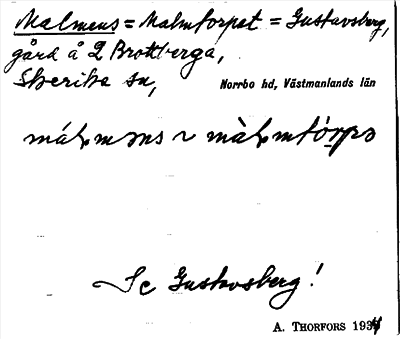 Malmens = Malmtorpet = Gustavsberg,
gård å 2 Brottberga,
Skerike sn, Norrbo hd, Västmanlands län
Se Gustavsberg!
A. THORFORS 1934